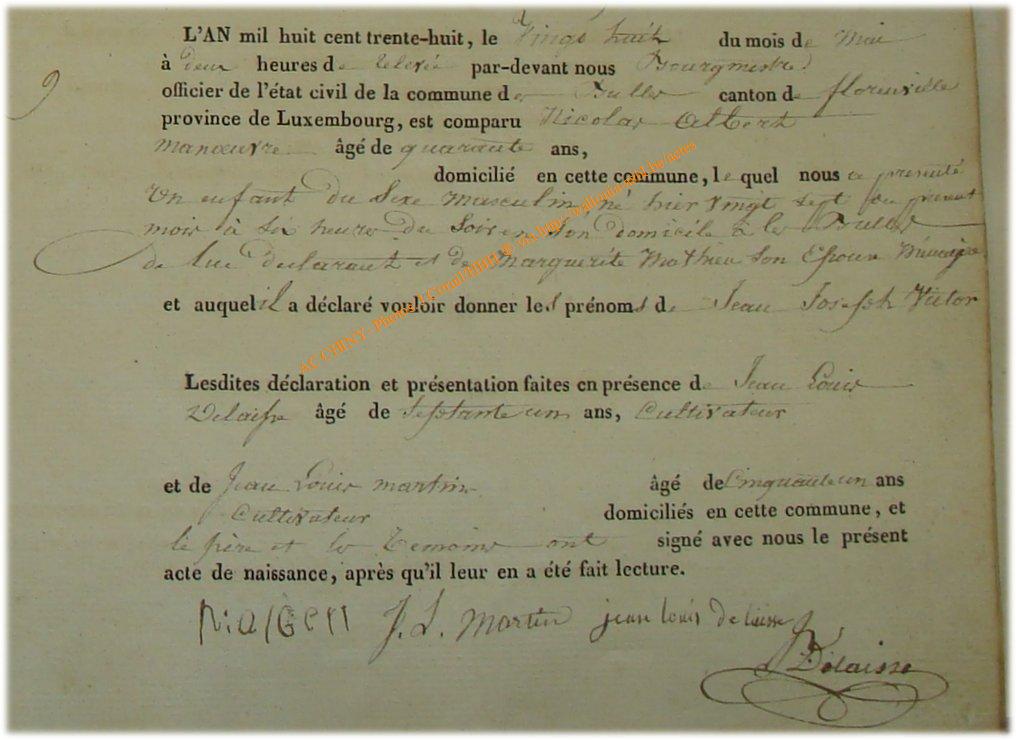 L'AN mil huit cent trente-huit, le Vingt huit du mois de Mai
à deux heures de relevée par-devant nous Bourgmestre
officier de l'état civil de la commune des Bulles canton de florenville
province de Luxembourg, est comparu Nicolas Albert
manœuvre âgé de quarante ans,
domicilié en cette commune, lequel nous a presenté
Un enfant du Sexe masculin, né hier vingt sept du present
mois à six heures du Soir en Son domicile à les Bulles
de lui declarant et de Marguerite Mathieu Son Epouse Ménagère
et auquel il a déclaré vouloir donner les prénoms de Jean Joseph Victor
Lesdites déclaration et présentation faites en présence de Jean Louis
Delaisse âgé de septante un ans, Cultivateur
et de Jean Louis martin âgé de Cinquante un ans
Cultivateur domiciliés en cette commune, et
le père et les Temoins ont signé avec nous le présent
acte de naissance, après qu'il leur en a été fait lecture.
J. L. Martin jean louis delaisse
Delaisse